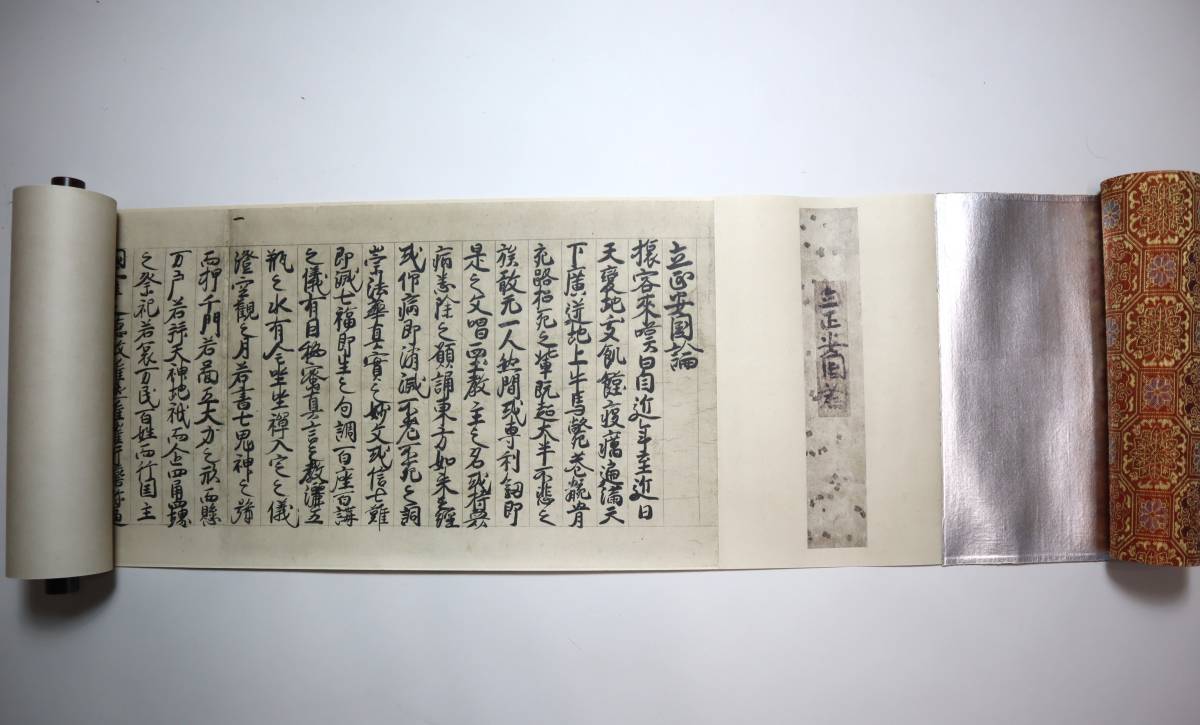 立正安国論
立正安国論
旅客來嘆曰自近年至近日
天變地夭飢饉疫癘遍滿天
下廣迸地上牛馬斃巷骸骨
充路招死之輩既超大半不悲之
族敢无一人然間或專利釼即
是之文唱西土教主之名或持衆
病悉除之願誦東方如來之經
或仰病即消滅不老不死之詞
崇法華真實之妙文或信七難
即滅七福即生之句調百座百講
之儀有因秘密真言之教灑五
瓶之水有全坐禪入定之儀
一
澄空觀之月若書七鬼神之號
而押千門若圖五大力之形而懸
万戸若拜天神地祇而企四角四堺
之祭祀若哀万民百姓而行国主